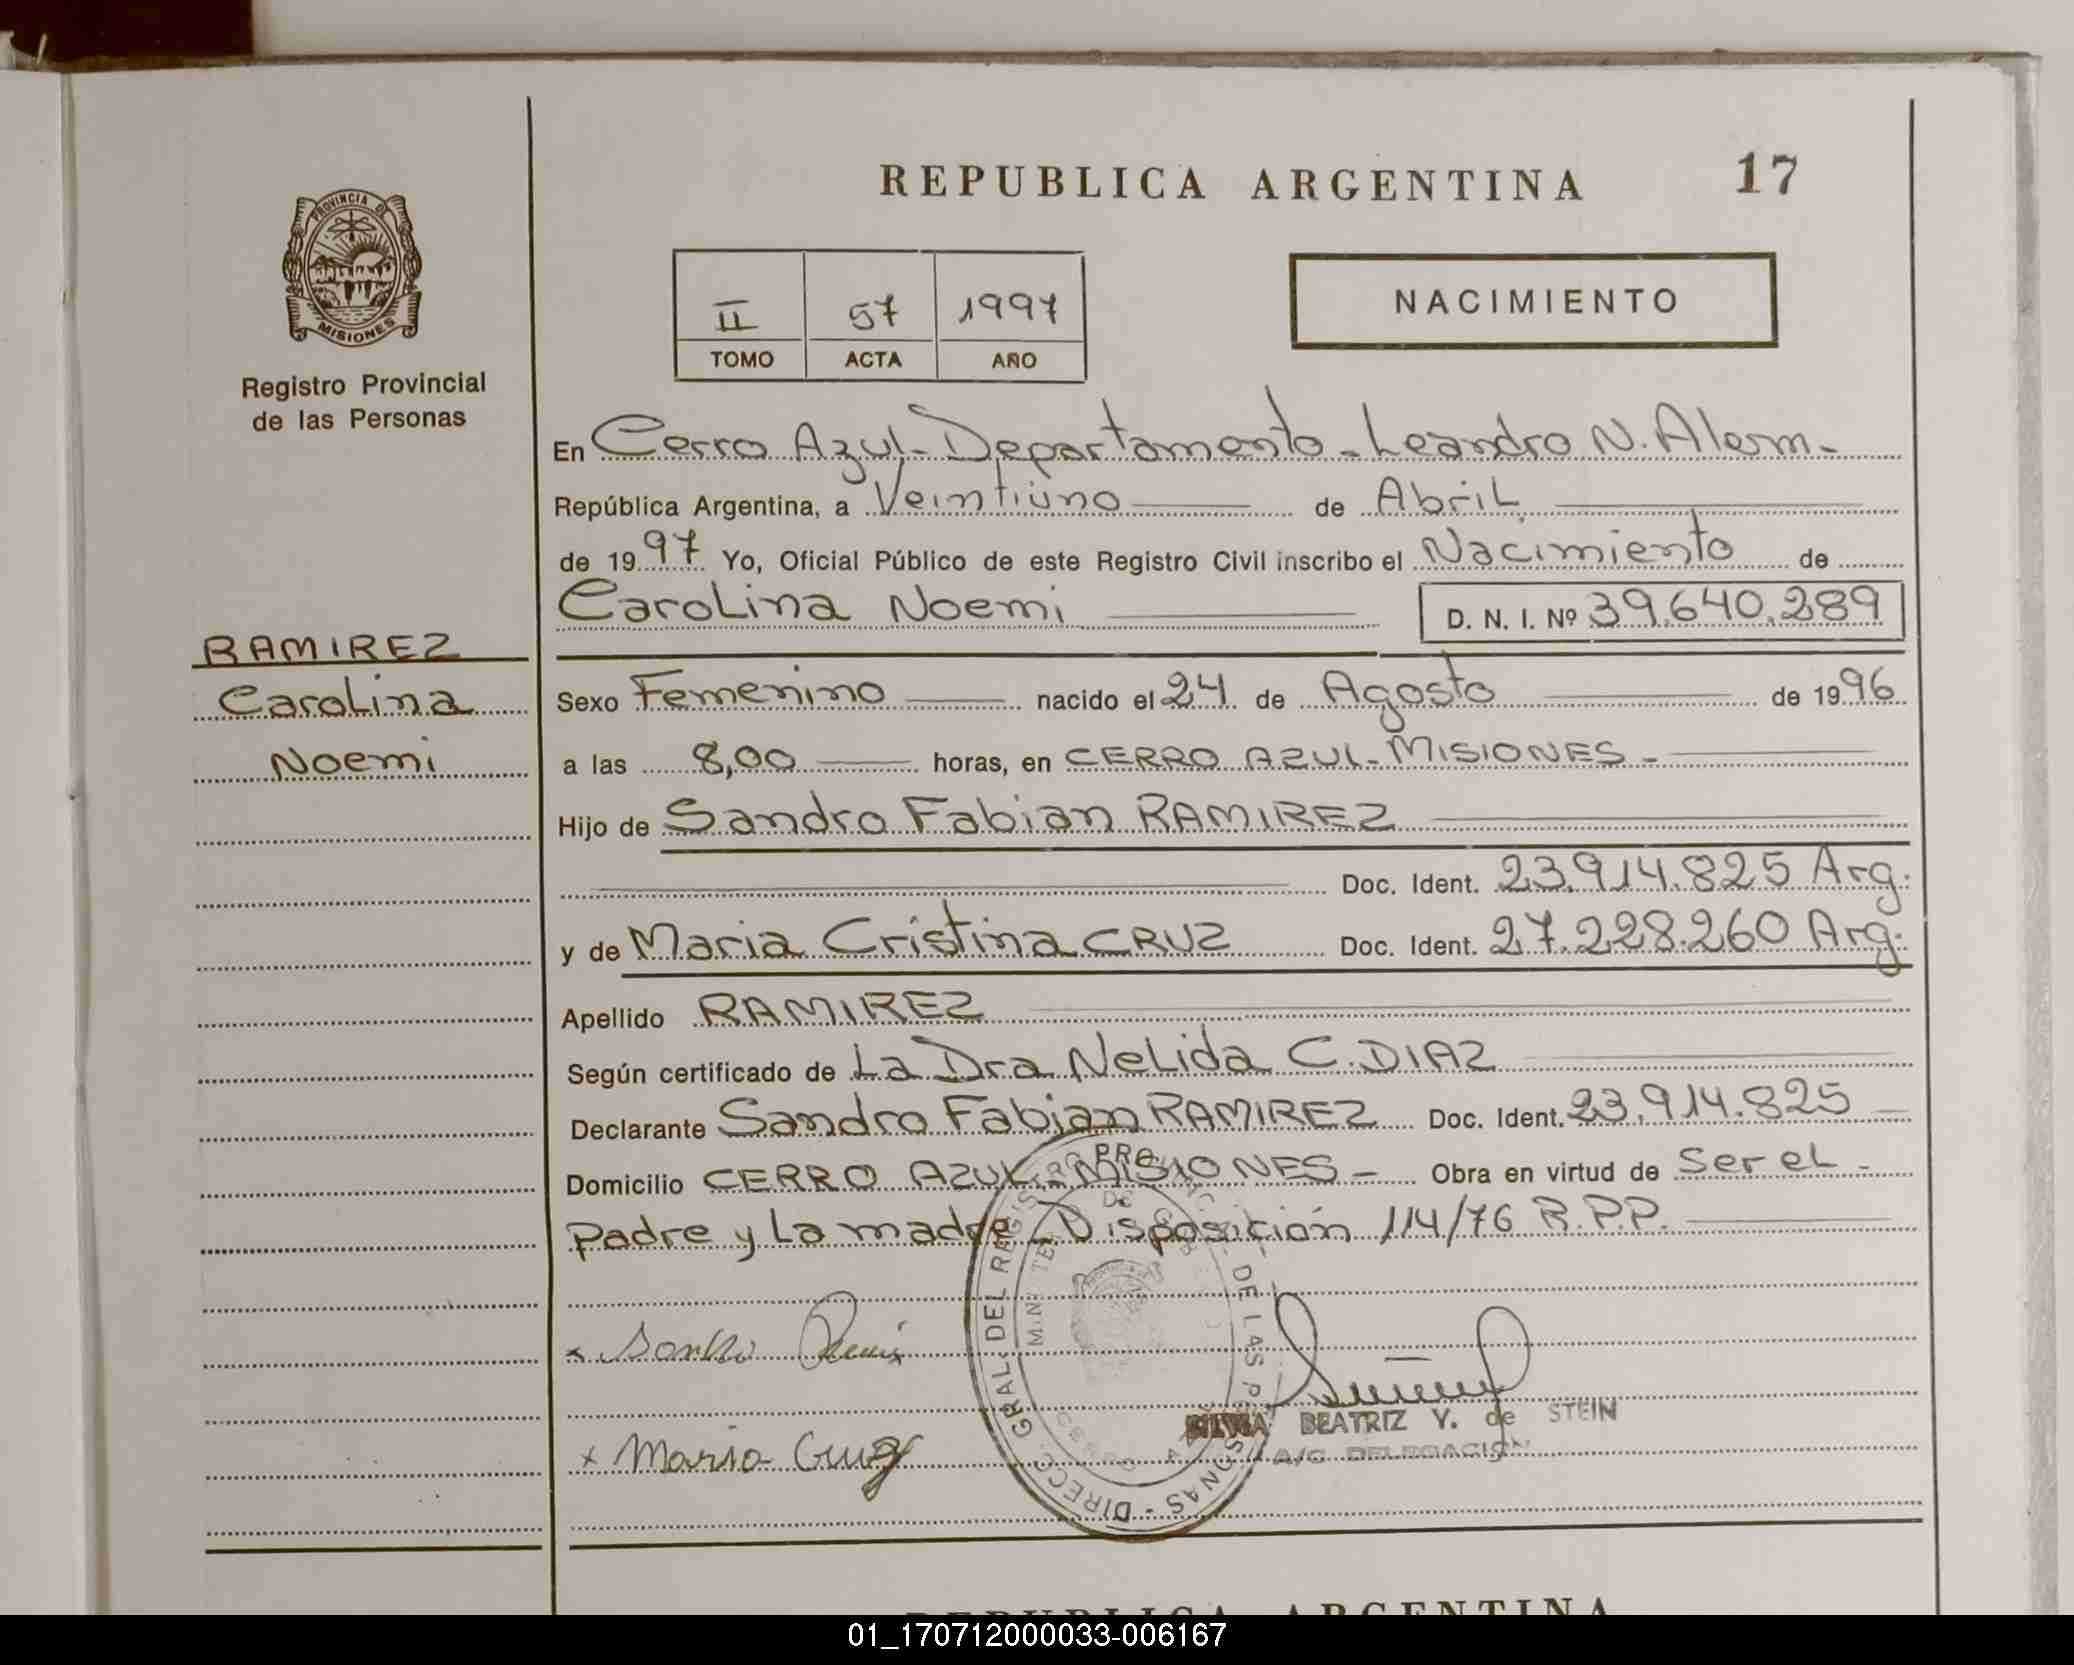 REPUBLICA ARGENTINA 17
PROVINCIA DE
MISIONES
Registro Provincial
de las Personas
II 57 1997
TOMO ACTA AÑO
NACIMIENTO
En Cerro Azul - Departamento - Leandro N. Alem -
República Argentina, a Veintiuno de Abril
de 1997 Yo, Oficial Público de este Registro Civil inscribo el Nacimiento de
Carolina Noemi D. N. I. Nº 39.640.289
RAMIREZ
Carolina
Noemi
Sexo Femenino nacido el 24 de Agosto de 1996
a las 8,00 horas, en CERRO AZUL - MISIONES -
Hijo de Sandro Fabian RAMIREZ
Doc. Ident. 23.914.825 Arg.
y de Maria Cristina CRUZ Doc. Ident. 27.228.260 Arg.
Apellido RAMIREZ
Según certificado de La Dra Nelida C. DIAZ
Declarante Sandro Fabian RAMIREZ Doc. Ident. 23.914.825
Domicilio CERRO AZUL - MISIONES - Obra en virtud de Ser el -
Padre y La madre - Disposición 114/76 R.P.P.
DIRECC. GRAL. DEL REGISTRO PROVINC. DE LAS PERSONAS
x Maria Cruz
BEATRIZ Y. de STEIN
A/C DELEGACION
REPUBLICA ARGENTINA
01_170712000033-006167